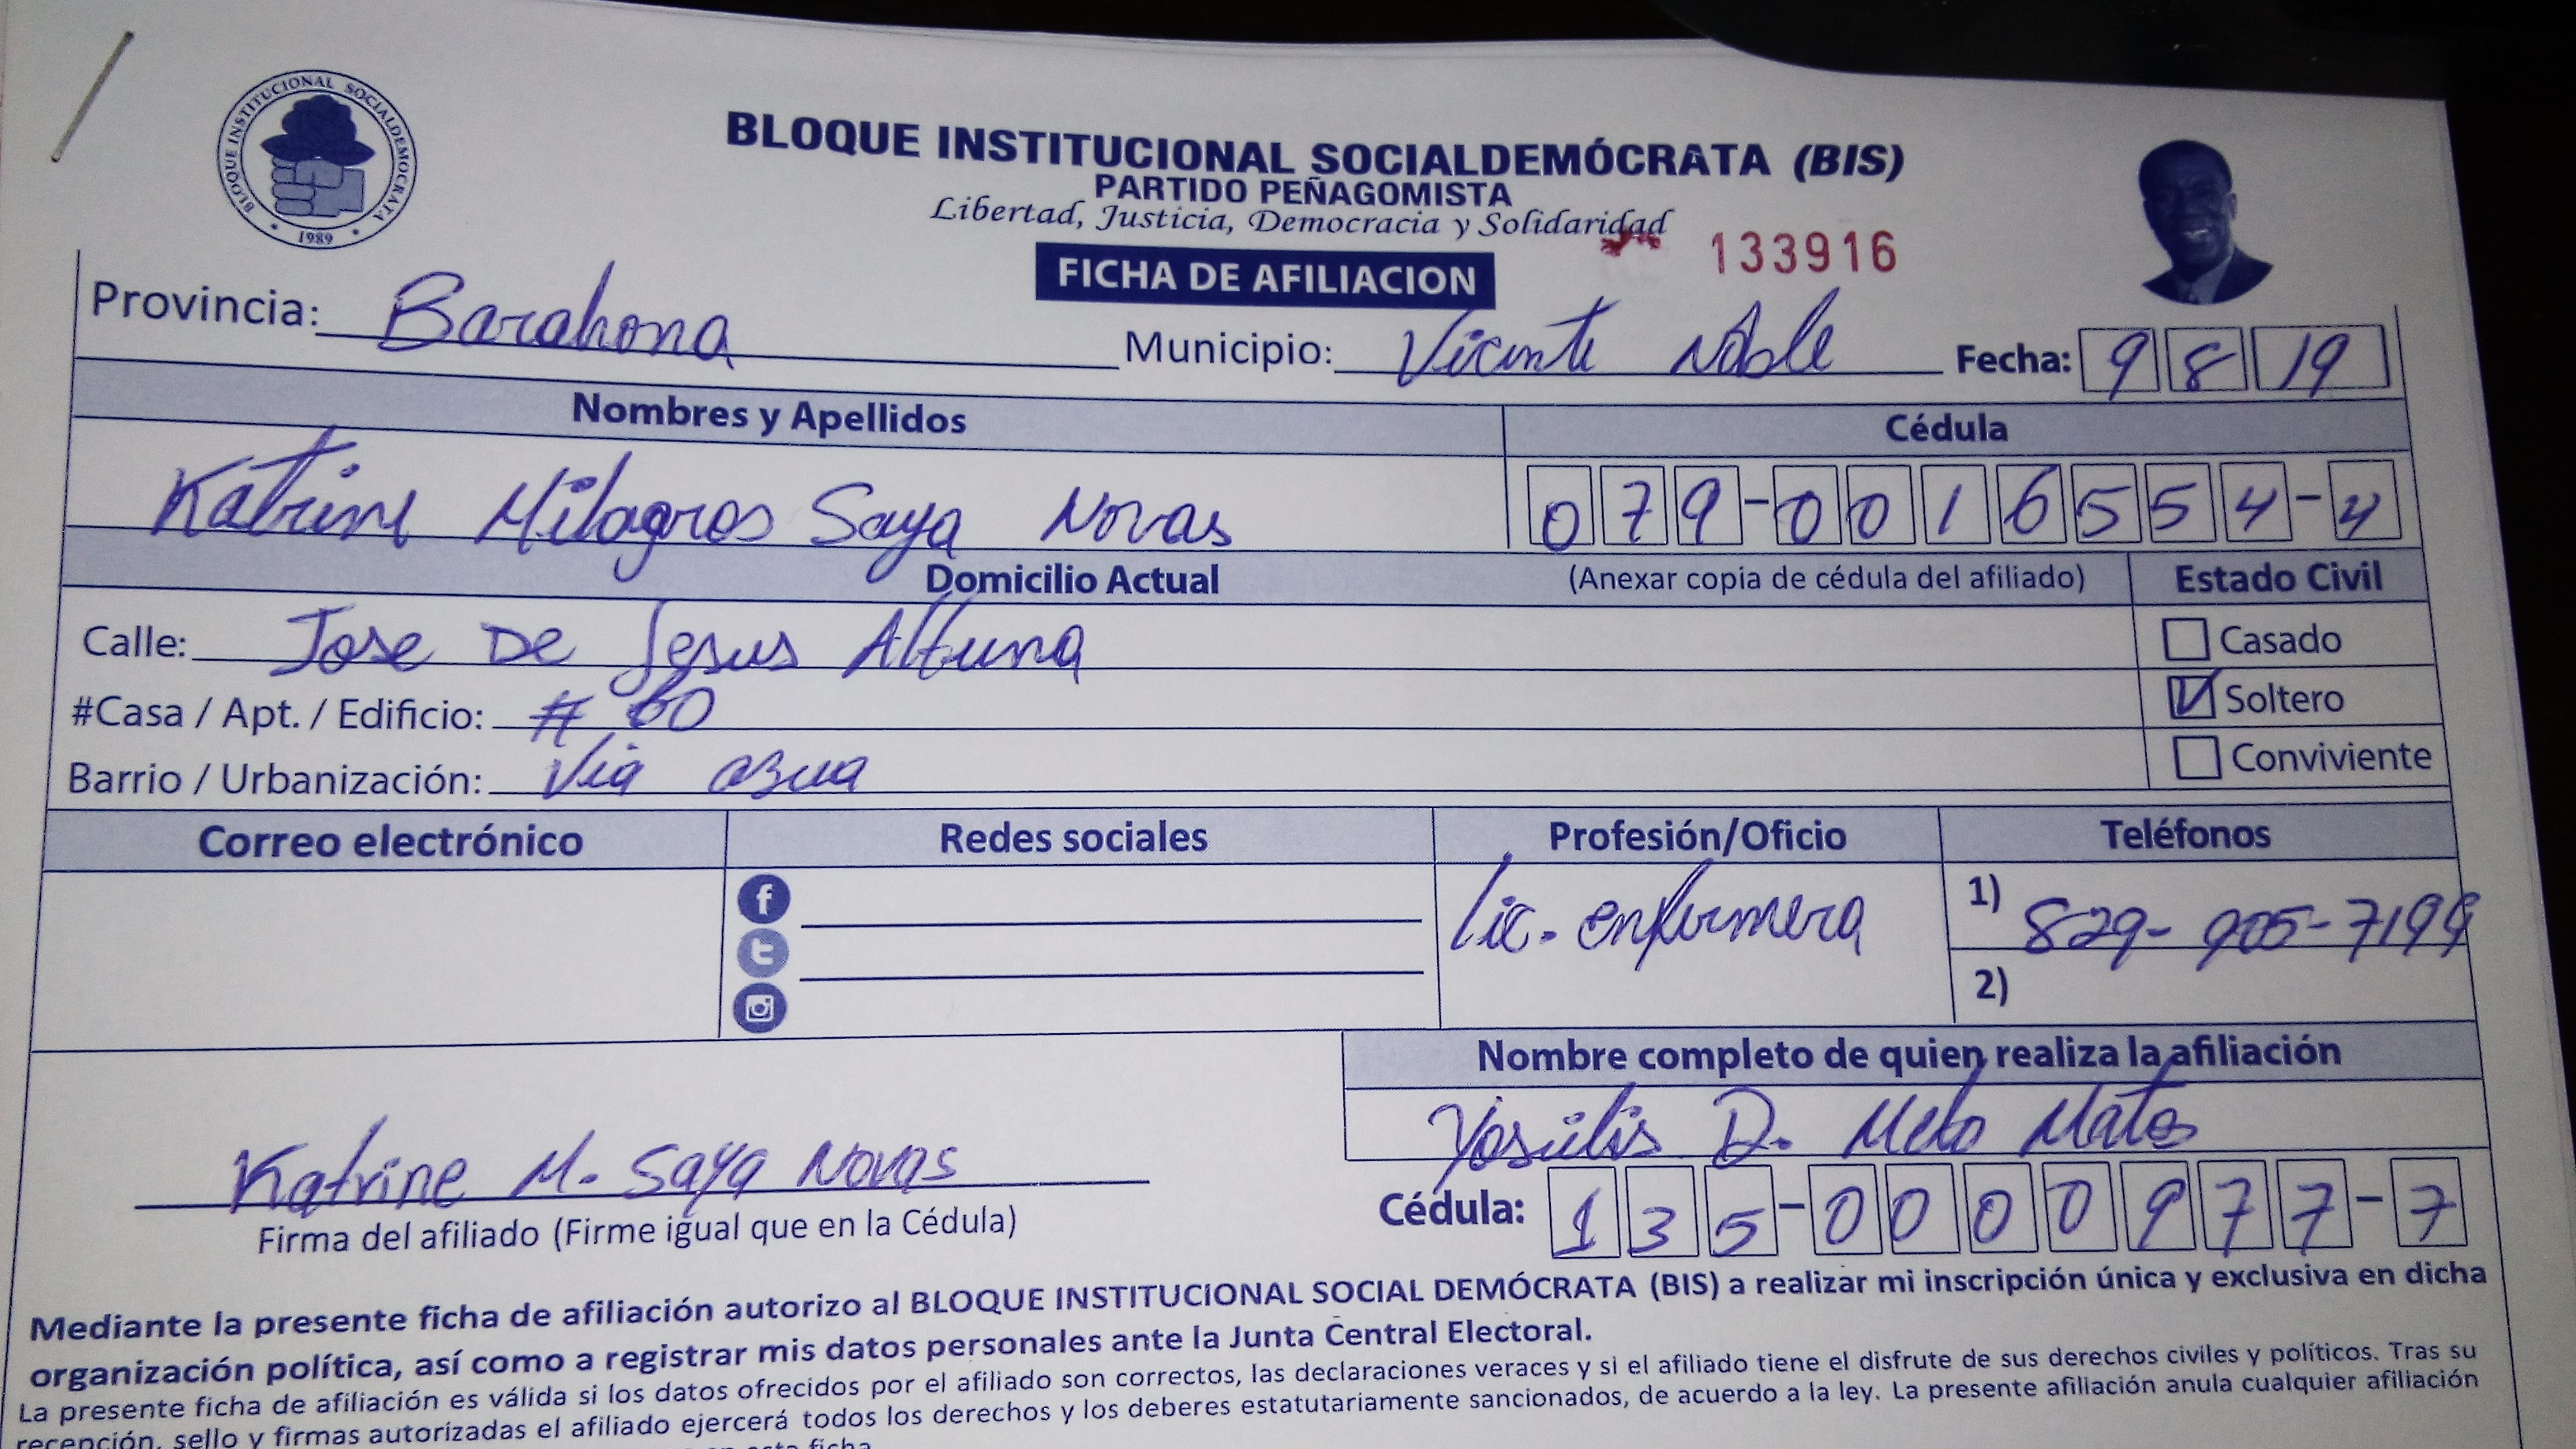 BLOQUE INSTITUCIONAL SOCIALDEMOCRATA
1989
BLOQUE INSTITUCIONAL SOCIALDEMÓCRATA (BIS)
PARTIDO PEÑAGOMISTA
Libertad, Justicia, Democracia y Solidaridad
133916
FICHA DE AFILIACION
Provincia: Barahona Municipio: Vicente Noble Fecha: 9 8 19
Nombres y Apellidos Cédula
Katrine Milagros Saya Novas 079-0016554-4
Domicilio Actual (Anexar copia de cédula del afiliado) Estado Civil
Calle: Jose De Jesus Altuna Casado
#Casa / Apt. / Edificio: # 60 Soltero
Barrio / Urbanización: Via azua Conviviente
Correo electrónico Redes sociales Profesión/Oficio Teléfonos
Lic. enfermera 1) 829-905-7199
2)
Nombre completo de quien realiza la afiliación
Yosulis D. Melo Matos
Katrine M. Saya Novas
Cédula: 135-0000977-7
Firma del afiliado (Firme igual que en la Cédula)
Mediante la presente ficha de afiliación autorizo al BLOQUE INSTITUCIONAL SOCIAL DEMÓCRATA (BIS) a realizar mi inscripción única y exclusiva en dicha
organización política, así como a registrar mis datos personales ante la Junta Central Electoral.
La presente ficha de afiliación es válida si los datos ofrecidos por el afiliado son correctos, las declaraciones veraces y si el afiliado tiene el disfrute de sus derechos civiles y políticos. Tras su
recepción, sello y firmas autorizadas el afiliado ejercerá todos los derechos y los deberes estatutariamente sancionados, de acuerdo a la ley. La presente afiliación anula cualquier afiliación
ficha